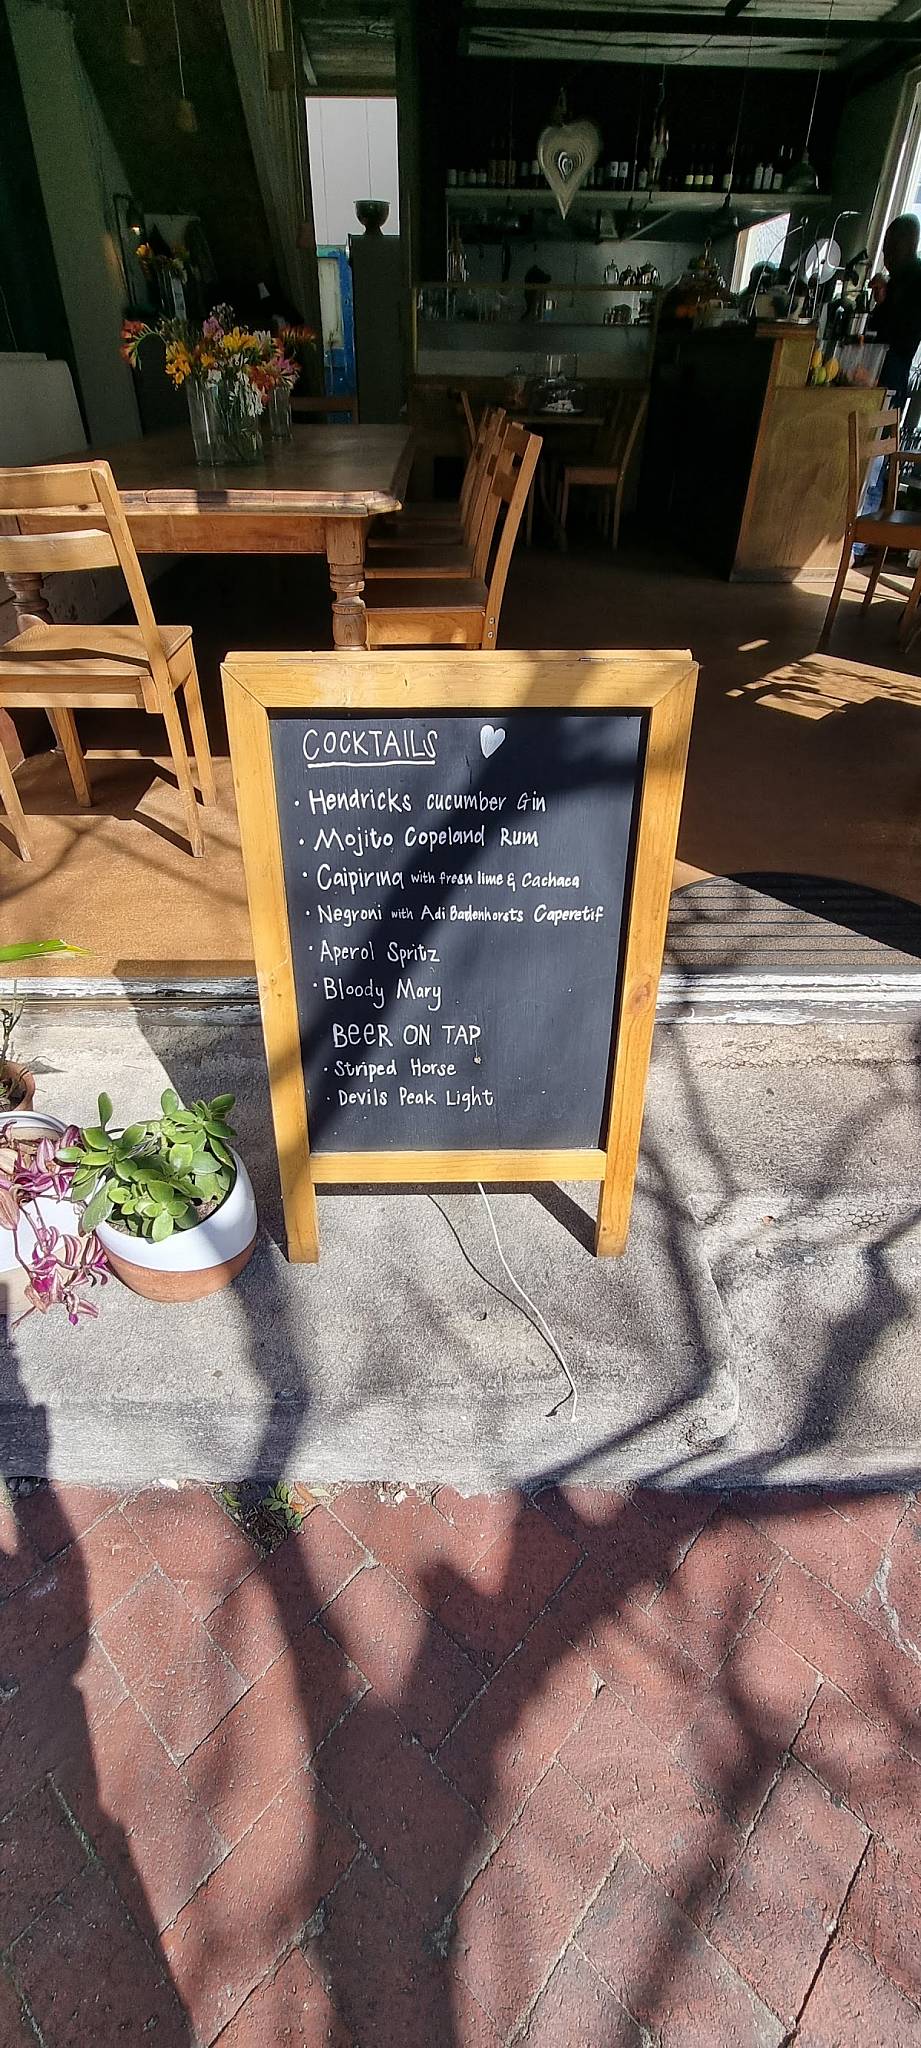 COCKTAILS
• Hendricks cucumber Gin
• Mojito Copeland Rum
• Caipirina with fresh lime & Cachaca
• Negroni with Adi Badenhorsts Caperetif
• Aperol Spritz
• Bloody Mary
BEER ON TAP
• Striped Horse
• Devils Peak Light